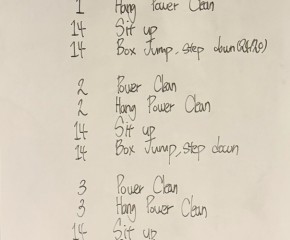 1 Hang Power Clean
14 Sit up
14 Box Jump, step down (24/20)
2 Power Clean
2 Hang Power Clean
14 Sit up
14 Box Jump, step down
3 Power Clean
3 Hang Power Clean
14 Sit up